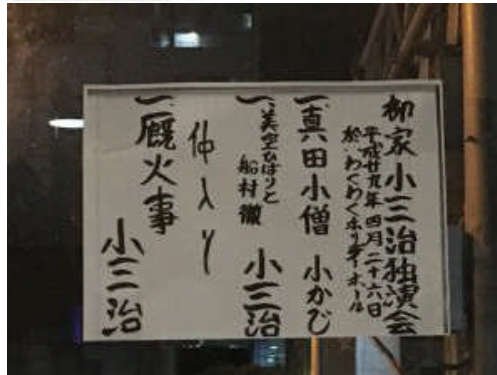 柳家小三治独演会
平成廿九年四月二十六日
於、わくわくホリデーホール
一、真田小僧 小かじ
一、美空ひばりと
船村徹 小三治
仲入り
一、厩火事
小三治